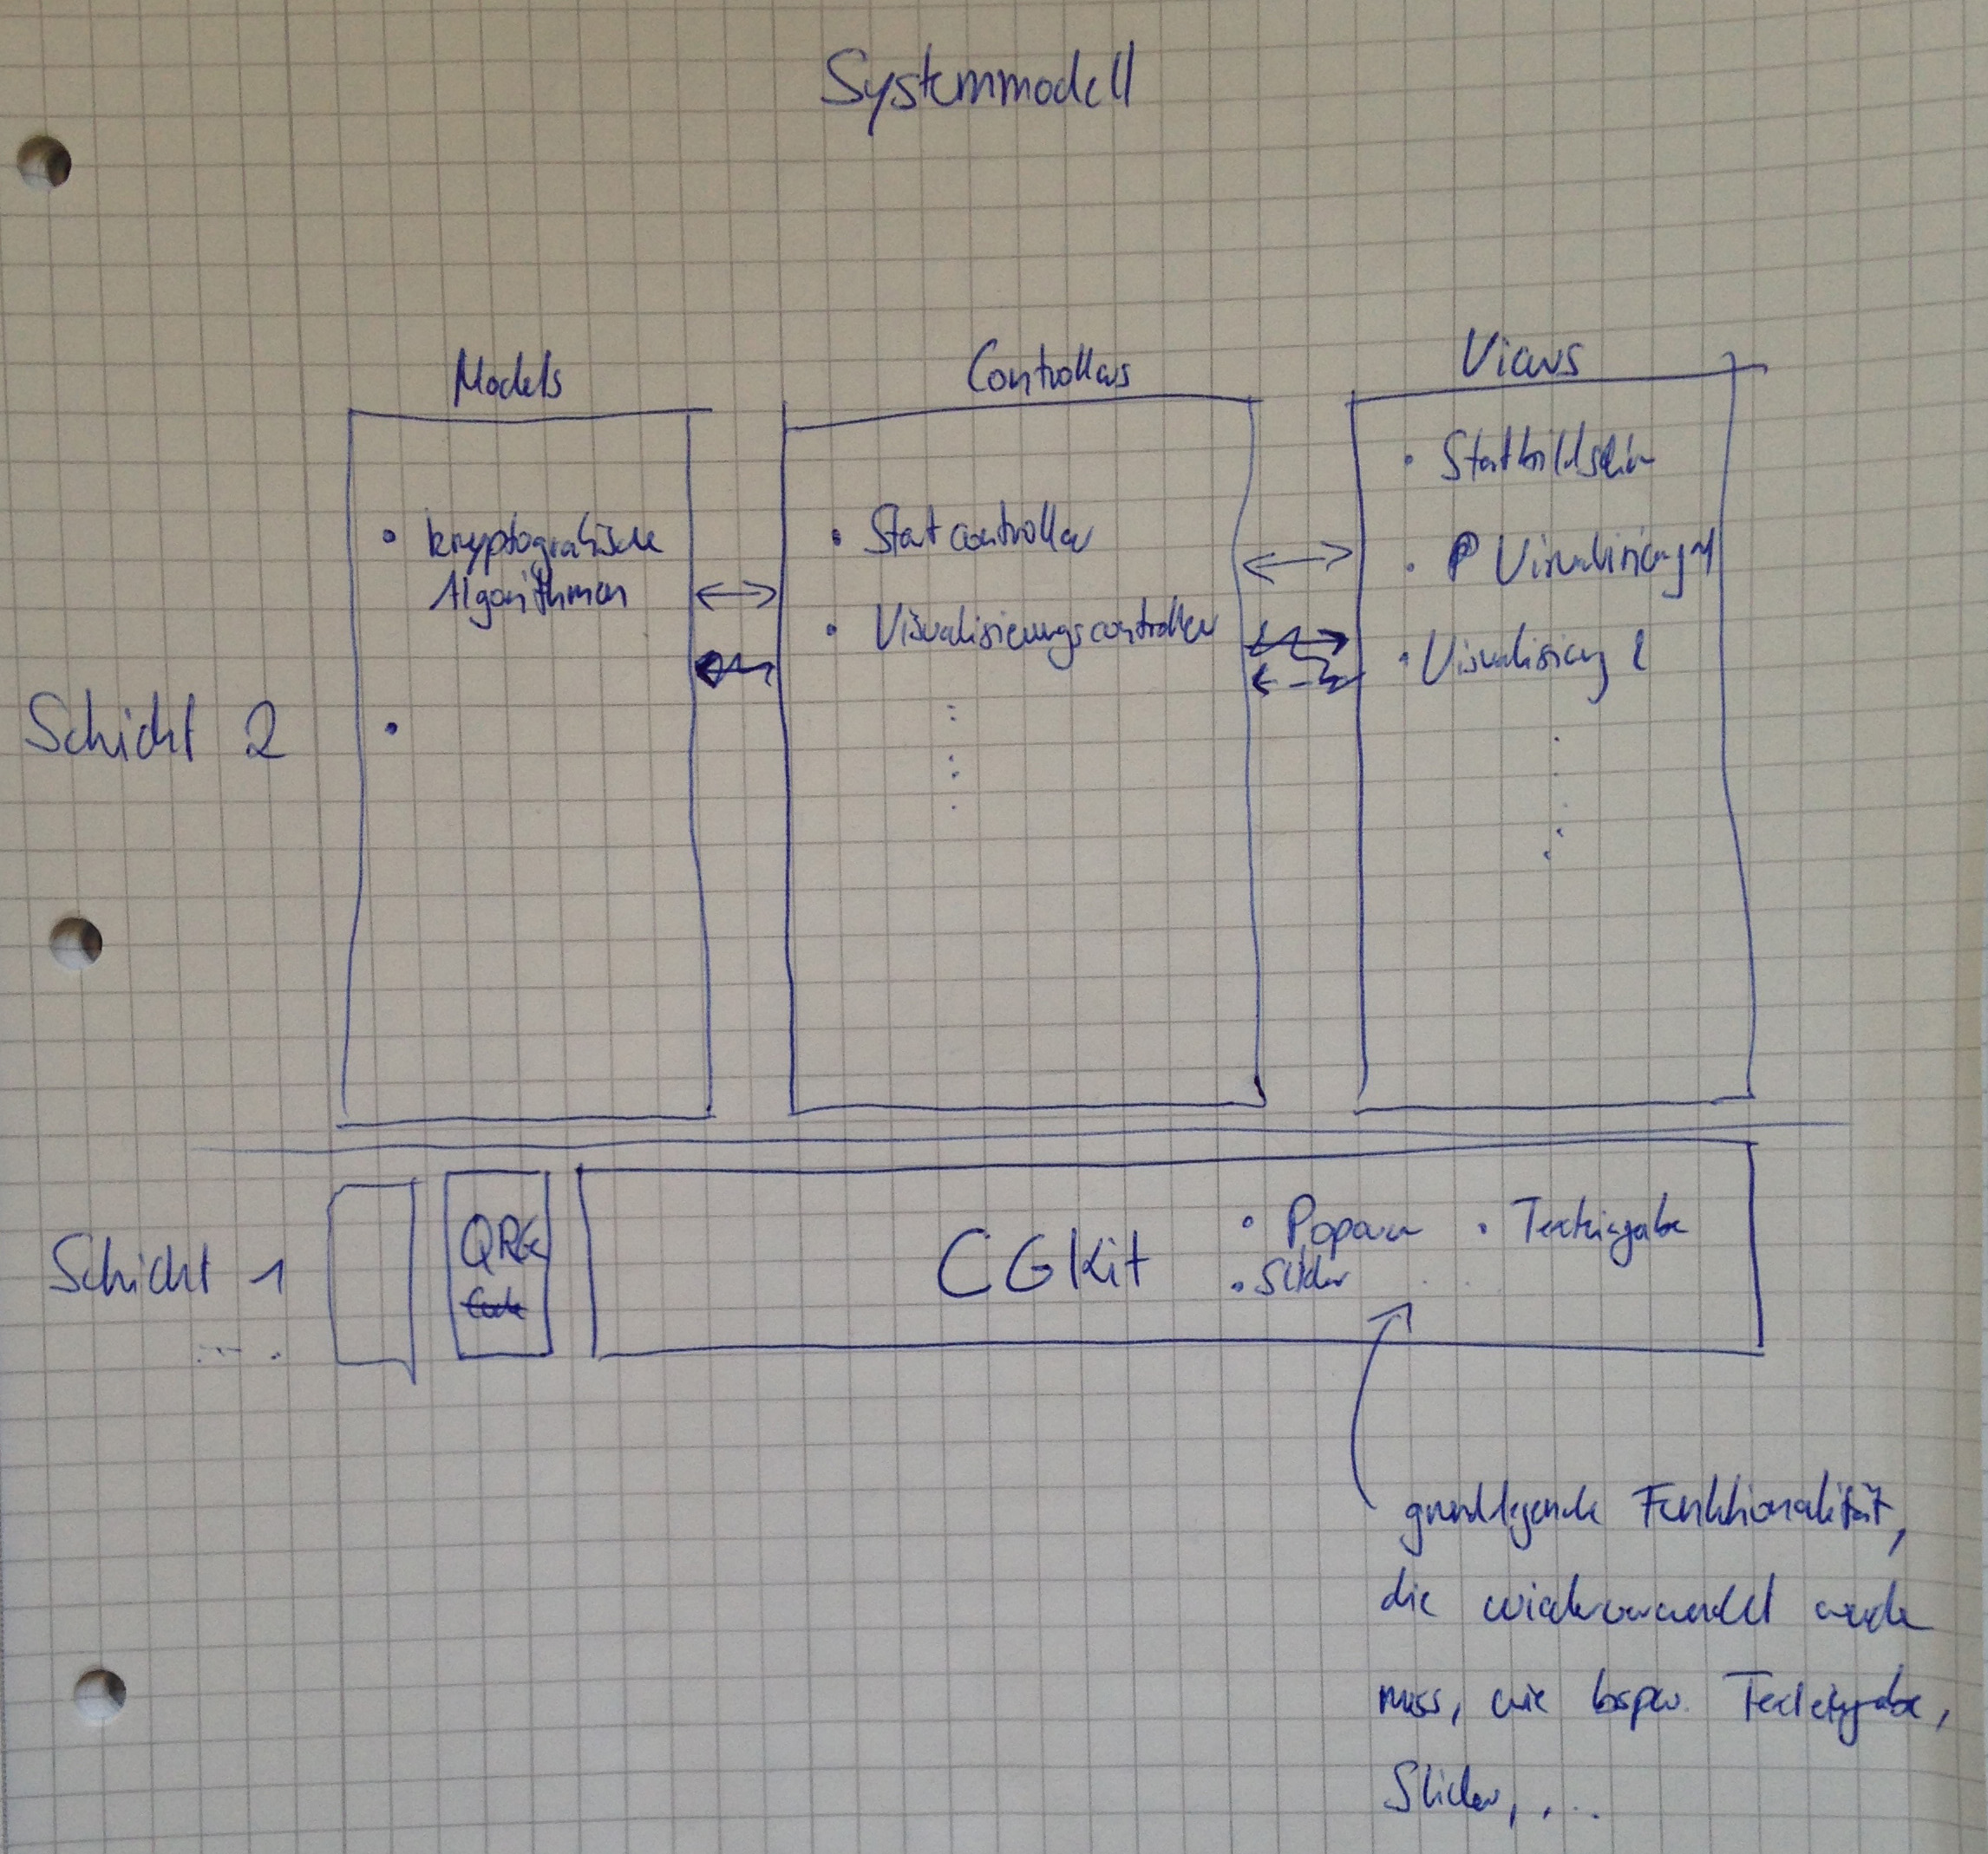 Systemmodell
Models
Controllers
Views
• kryptografische
Algorithmen
• Startcontroller
• Visualisierungscontroller
• Startbildschirm
• Visualisierung 1
• Visualisierung 2
Schicht 2
•
Schicht 1
CGKit
• Popover
• Texteingabe
• Slider
grundlegende Funktionalität,
die wiederverwendet werden
muss, wie bspw. Texteingabe,
Slider, ...